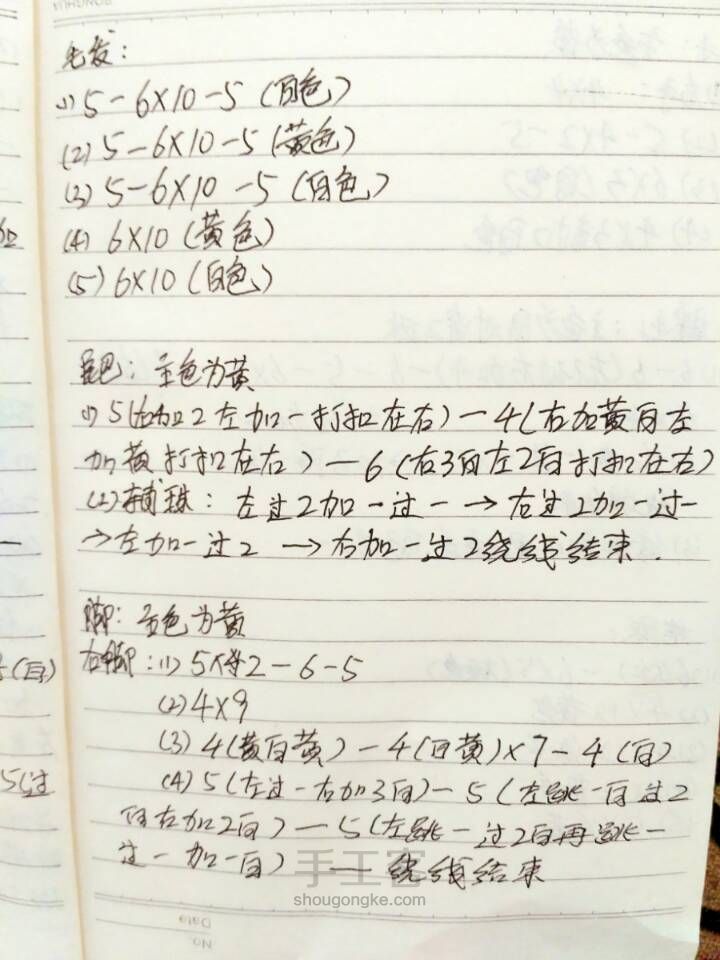 毛发:
(1) 5-6×10-5 (白色)
(2) 5-6×10-5 (黄色)
(3) 5-6×10-5 (白色)
(4) 6×10 (黄色)
(5) 6×10 (白色)
尾巴: 主色为黄
(1) 5(右加2左加一打扣在右)-4(右加黄白左
加黄打扣在右)-6(右3白左2白打扣在右)
(2)辅珠: 左过2加一过一→右过2加一过一
→左加一过2→右加一过2绕线结束.
脚: 主色为黄
右脚: (1) 5×2-6-5
(2) 4×9
(3) 4(黄白黄)-4(白黄)×7-4(白)
(4) 5(左过一右加3白)-5(左跳一白过2
白右加2白)-5(左跳一过2白再跳一
过一加一白) — 绕线结束
手工客
shougongke.com
Date
No.
(白)
5(过